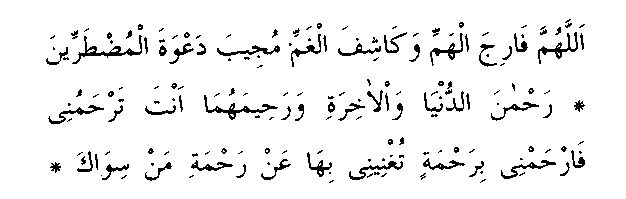 اَللّٰهُمَّ فَارِجَ الْهَمِّ وَكَاشِفَ الْغَمِّ مُجِيبَ دَعْوَةَ الْمُضْطَرِّينَ
* رَحْمٰنَ الدُّنْيَا وَاْلاٰخِرَةِ وَرَحِيمَهُمَا اَنْتَ تَرْحَمُنِى
فَارْحَمْنِى بِرَحْمَةٍ تُغْنِينِى بِهَا عَنْ رَحْمَةِ مَنْ سِوَاكَ *